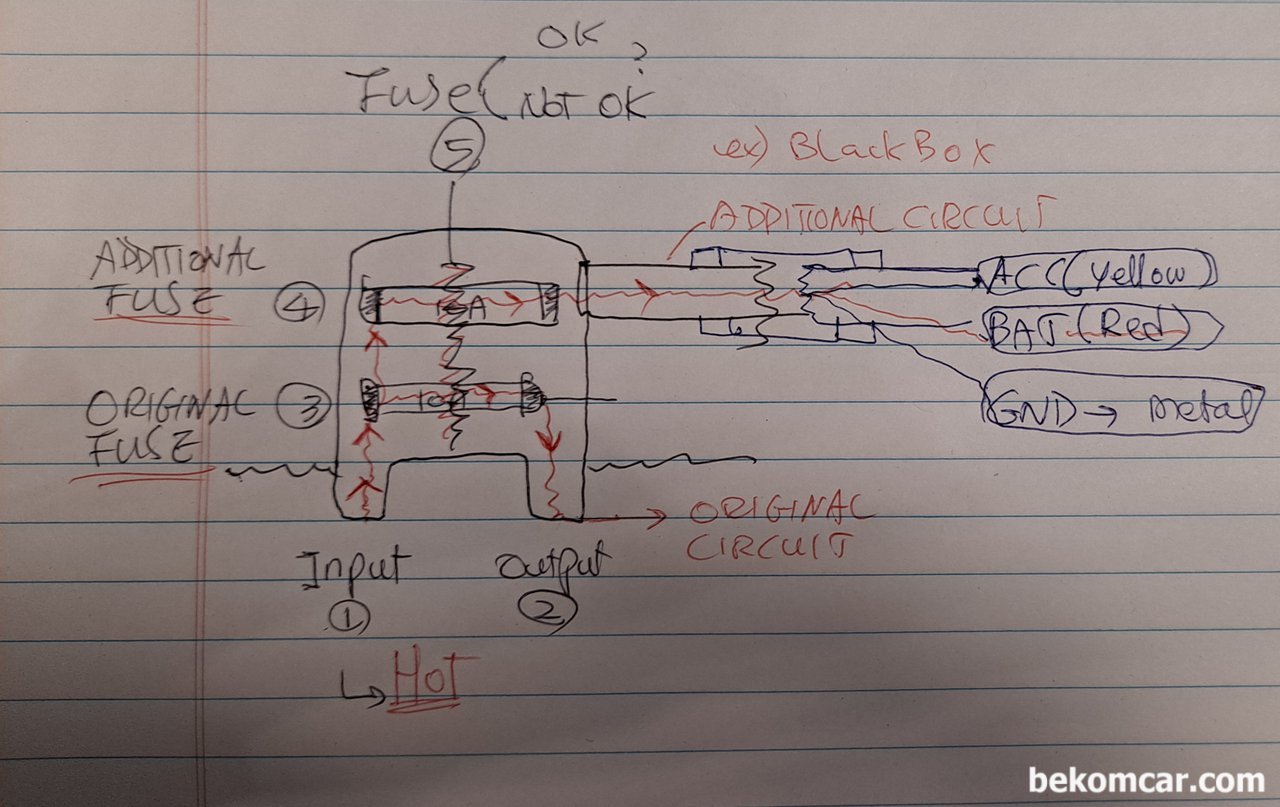 OK ?
Fuse ( NOT OK
⑤
ex) BlackBox
ADDITIONAL CIRCUIT
ADDITIONAL
FUSE ④
ACC (Yellow)
BAT (Red)
ORIGINAL ③
FUSE
GND → metal
ORIGINAL
CIRCUIT
Input
①
Output
②
↳ HOT
bekomcar.com